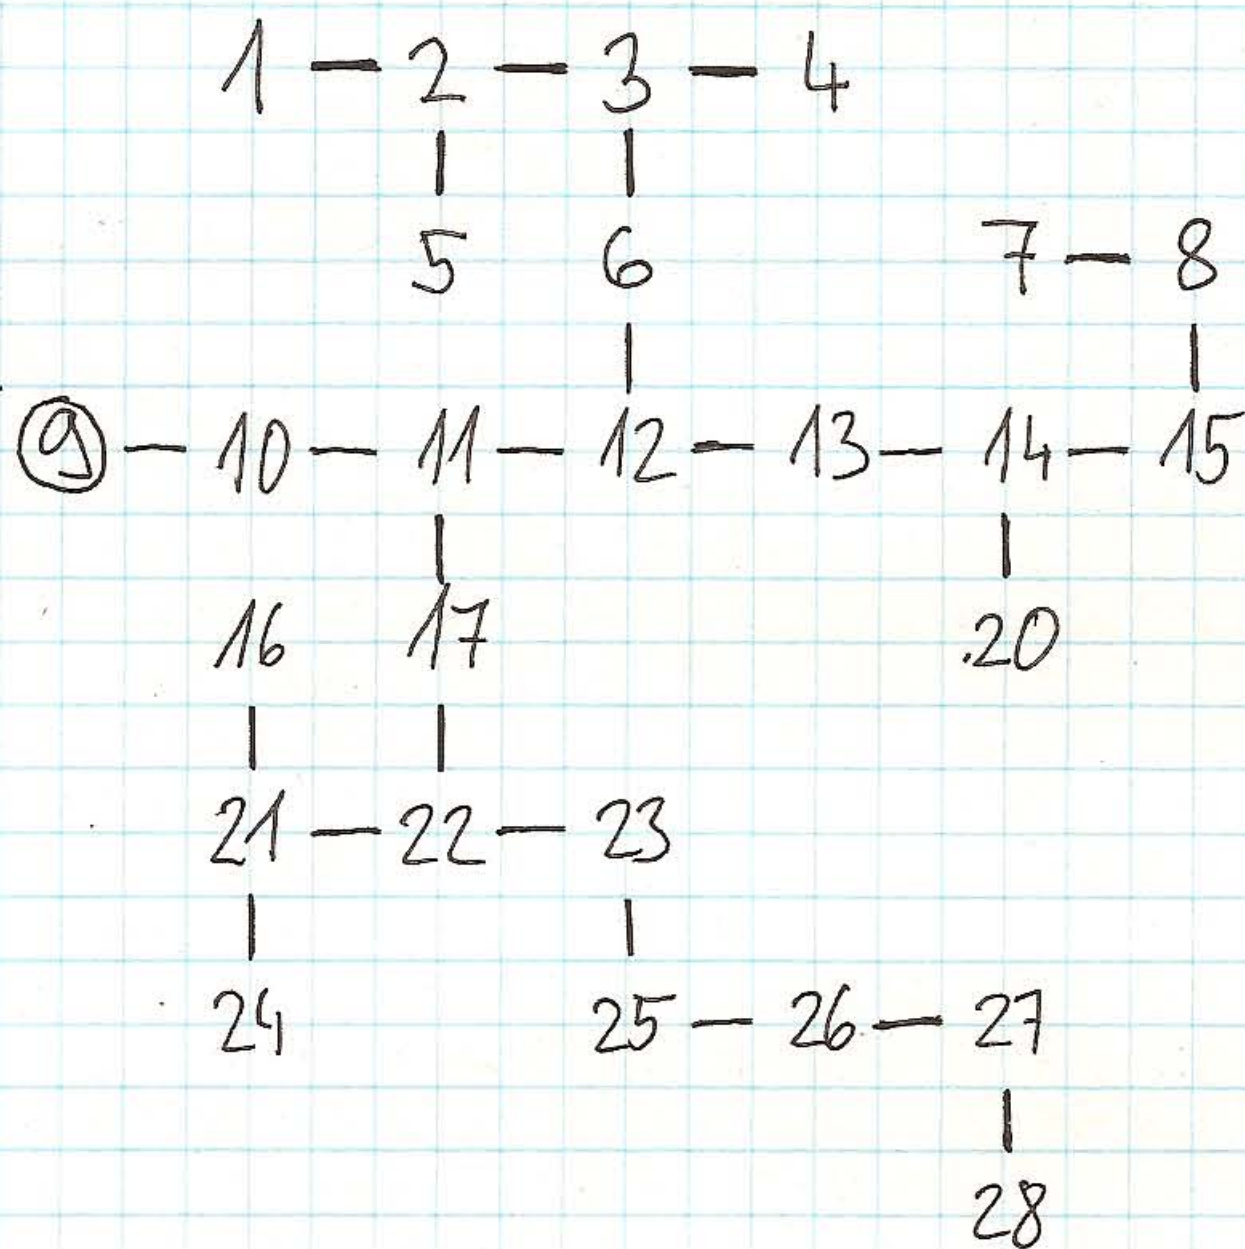 1 — 2 — 3 — 4
5 6 7 — 8
9 — 10 — 11 — 12 — 13 — 14 — 15
16 17 20
21 — 22 — 23
24 25 — 26 — 27
28